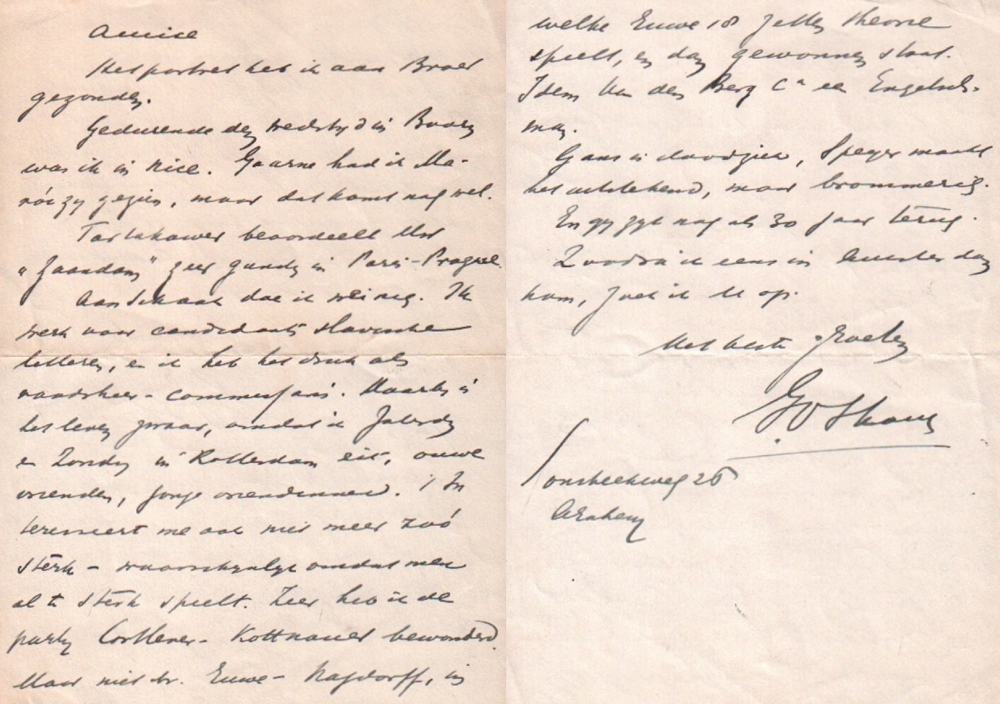 Amice
Het portret heb ik aan Broer
gezonden.
Gedurende den wedstryd in Baarn
was ik in Nice. Gaarne had ik Ma-
róczy gezien, maar dat komt nog wel.
Tartakower beoordeelt Uw
"Zaandam" zeer gunstig in Paris-Prague.
Aan Schaak doe ik weinig. Ik
werk voor candidaats Slavische
letteren, en ik heb het druk als
raadsheer-commissaris. Daarby is
het leven zwaar, omdat ik Zaterdag
en Zondag in Rotterdam zit, ouwe
vrienden, jonge vriendinnen. 't In
teresseert me ook niet meer zoó
sterk - waarschynlyk omdat men
al te sterk speelt. Zeer heb ik de
party Cortlever - Kottnauer bewonderd.
Maar niet b.v. Euwe - Nagdorff, in
welke Euwe 18 zetten theorie
speelt, en dan gewonnen staat.
Idem Van den Berg Ca een Engelsch-
man.
Gans is doodziek, Speyer maakt
het uitstekend, maar brommerig.
En gy zyt nog als 30 jaar terug.
Zoodra ik eens in Amsterdam
kom, zoek ik U op.
Met beste groeten
Sonsbeekweg 26
Arnhem